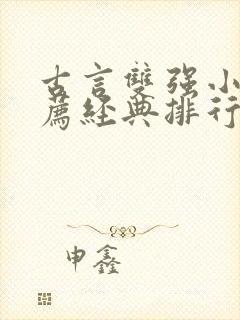 古言雙强小
薦經典排行
申鑫